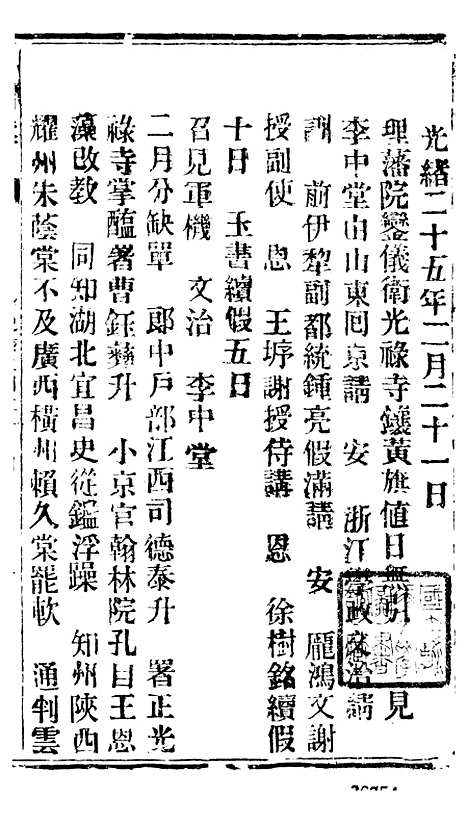 光緒二十五年二月二十一日
理藩院鑾儀衛光祿寺鑲黃旗值日無引 見
李中堂由山東回京請 安 浙江學政文治請
訓 前伊犂副都統鍾亮假滿請 安 龐鴻文謝
授副使 恩 王垿謝授侍講 恩 徐樹銘續假
十日 玉書續假五日
召見軍機 文治 李中堂
二月分缺單 郎中戶部江西司德泰升 署正光
祿寺掌醢署曹鈺彝升 小京官翰林院孔目王恩
藻改教 同知湖北宜昌史從鑑浮躁 知州陝西
耀州朱蔭棠不及廣西橫州賴久棠罷軟 通判雲